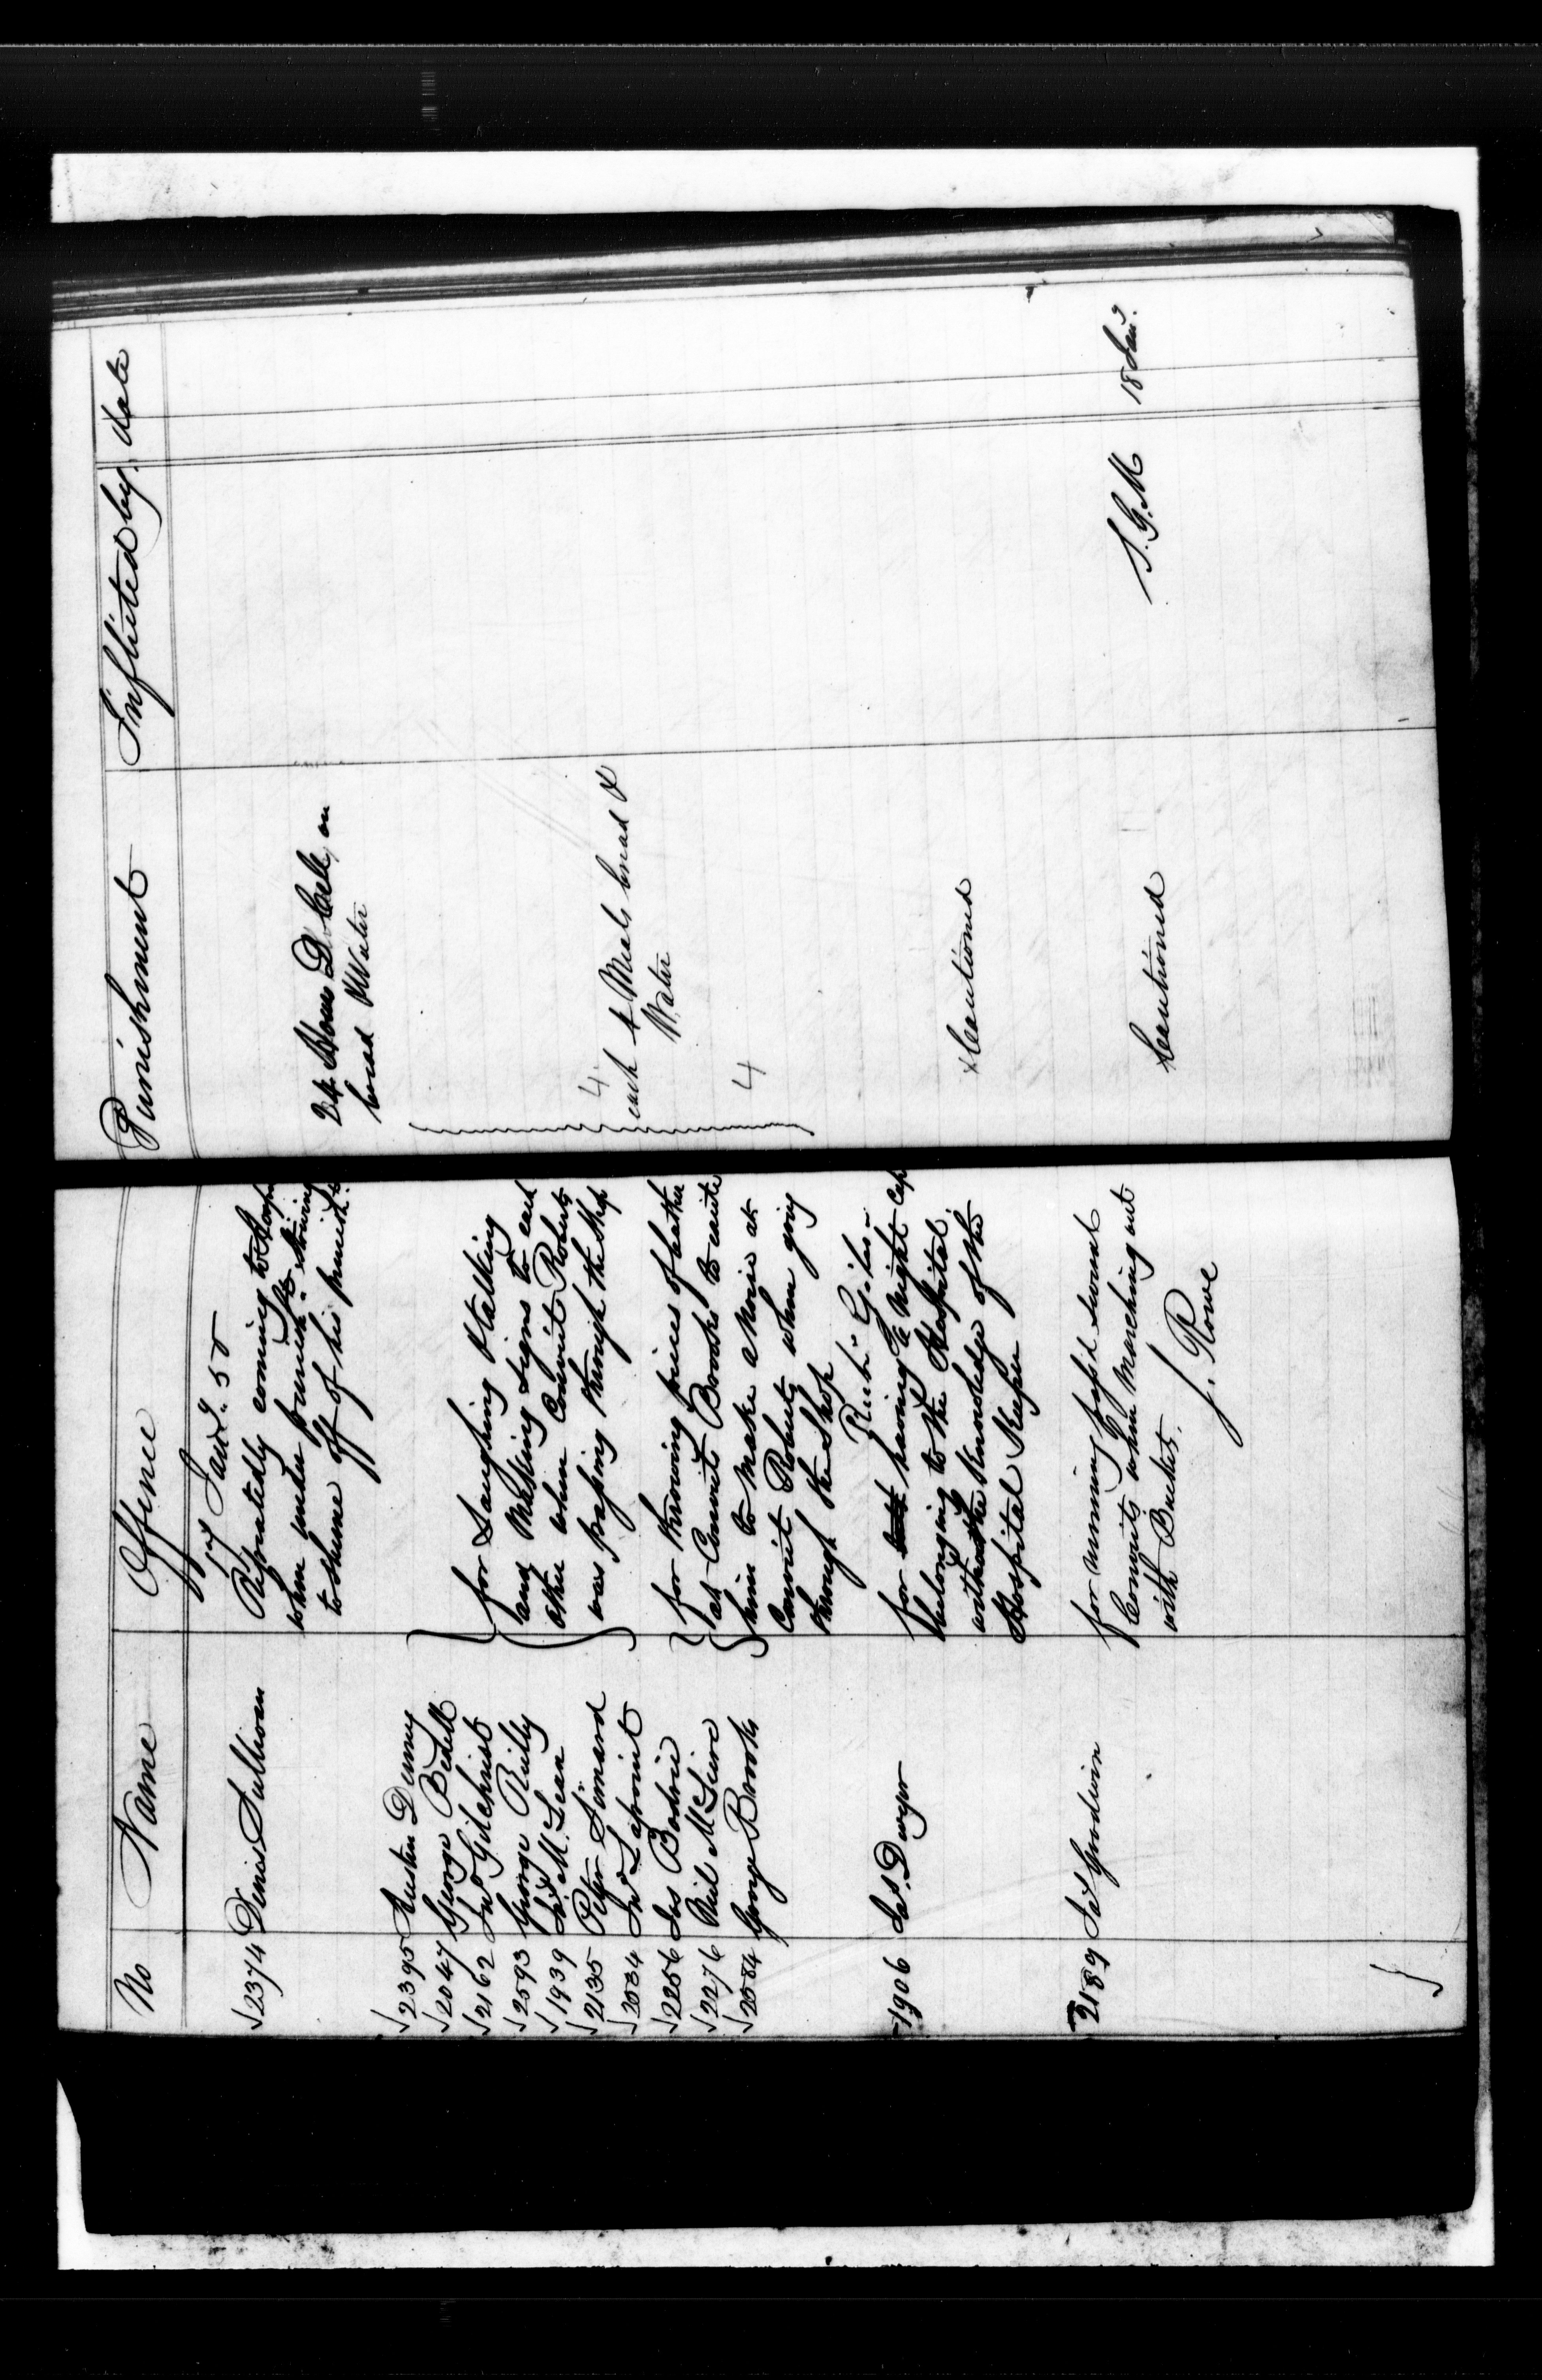 No Name Offence Punishment Inflicted by date
17 Jany. 55
√2374 Denis Sullivan Repeatedly coming to
when under punisht. &
to shame off of his punisht.
24 Hours D. Cell, on
bread & Water
√2395 Austin Denny
√2047 George Bedell
√2162 Jno Gilchrist
√2593 George Reilly
√1939 M. Lean
√2135 Peter Simard
√2034 Jno Lapoint
√2256 Jos Bodrie
√2276 Neil McGuire
√2084 George Brooks
for Laughing & talking
and Making signs to each
other when Convict Roberts
was passing through the Shop
for throwing pieces of leather
at Convict Brooks to
him to make a Noise at
Convict Roberts when going
through the Shop
4
each 4 Meals bread &
Water
4
1906 Jas. Dwyer for having a Night Cap
belonging to the Hospital
without the Knowledge of the
Hospital Keeper
x Cautioned
2189 Jas Goodwin for running past several
Convicts when Marching out
with Buckets.
J. Rowe
Cautioned
S. G. M 18 Jany.